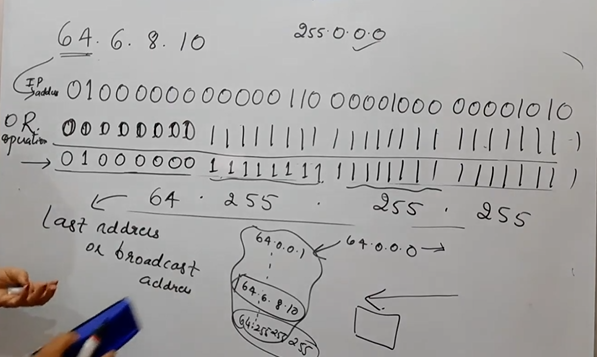 64.6.8.10
255.0.0.0
IP addres
01000000 00000110 00001000 00001010
OR operation
00000000 11111111 11111111 11111111
01000000 11111111 11111111 11111111
64 . 255 . 255 . 255
Last address
or broadcast
address
64.0.0.1
64.0.0.0
64.6.8.10
64.255.255.255